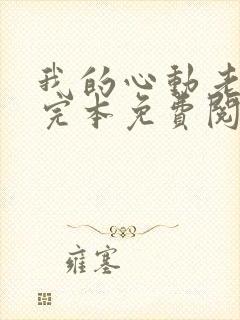 我的心動老
完本免費閱
雍塞